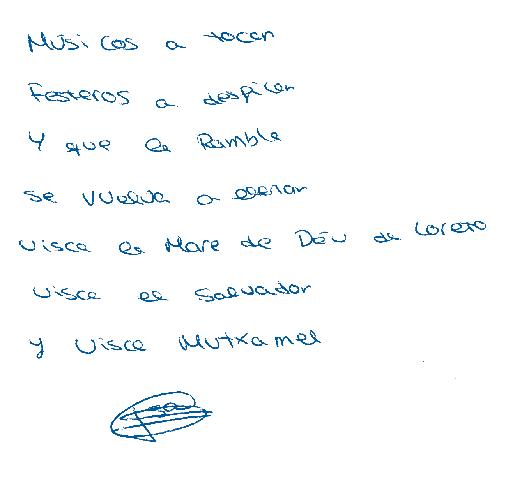 Músicos a tocar
Festeros a desfilar
Y que la Rambla
se vuelva a llenar
Visca la Mare de Déu de Loreto
Visca el Salvador
y Visca Mutxamel